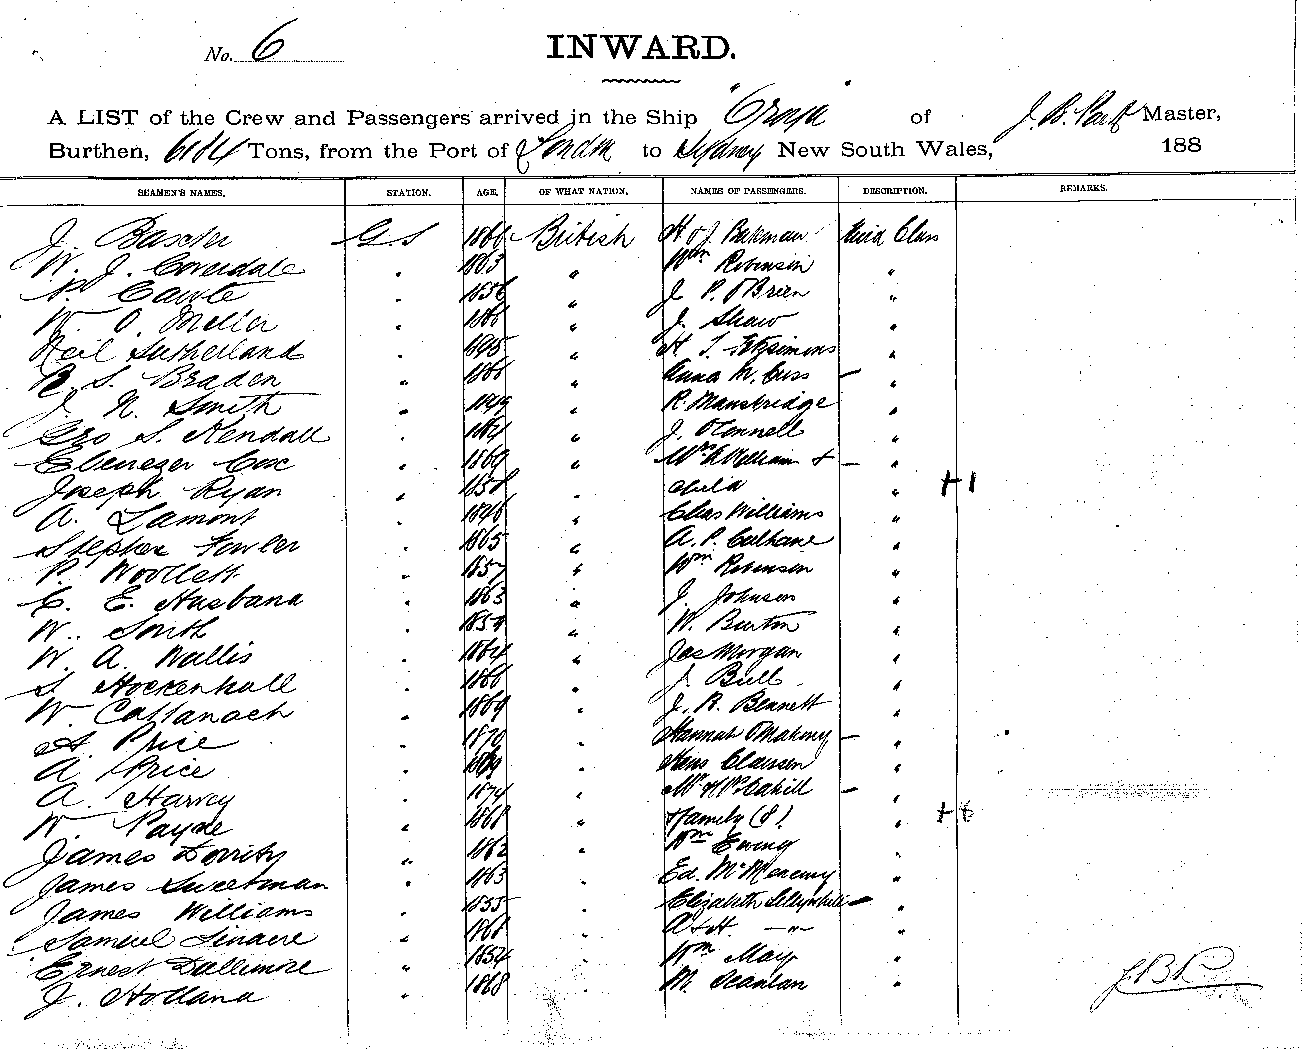 No. 6
INWARD.
A LIST of the Crew and Passengers arrived in the Ship "Oroya" of J. B. Master,
Burthen, 6184 Tons, from the Port of London to Sydney New South Wales, 188
SEAMEN'S NAMES. STATION. AGE. OF WHAT NATION. NAMES OF PASSENGERS. DESCRIPTION. REMARKS.
J. Baxter G S 1866 British H & J Bakeman Third Class
W. J. Coverdale " 1863 " Wm Robinson "
Cawte " 1856 " J P. O'Brien "
W. O. Miller " " J. Shaw "
Neil Sutherland " " H S. Fitzsimons "
R. S. Braden " " Anna M. Cuss — "
J. N. Smith " " R. Mansbridge "
Geo S. Kendall " 1864 " J. O'Connell "
Ebenezer Cox " 1869 " & — "
Joseph Ryan " 1858 " child " + 1
A. Lamont " " Chas Williams "
Stephen Fowler " 1865 " A. P. Culhane "
P. Woollett " 1857 " Wm Robinson "
C. E. Husband " 1863 " J. Johnson "
W. Smith " 1859 " W. Burton "
W. A. Wallis " 1864 " Jas Morgan "
S. Hockenhull " 1866 " J. Bull "
W. Cattanach " 1869 " J. R. Bennett "
A. Price " 1870 " Hannah O'Mahony — "
A. Price " 1869 " Hans Claussen "
A. Harvey " 1874 " Cahill — "
W. Payne " 1868 " & family (8) " + 8
James Dorrity " 1862 " Wm Ewing "
James Sweetman " 1863 " Ed. McMenemy "
James Williams " 1855 " Elizabeth — "
Samuel Linacre " 1868 " A & H. —"— "
Ernest Dallimore " 1854 " Wm May "
J. Holland " 1868 " M. Scanlan "
J B R